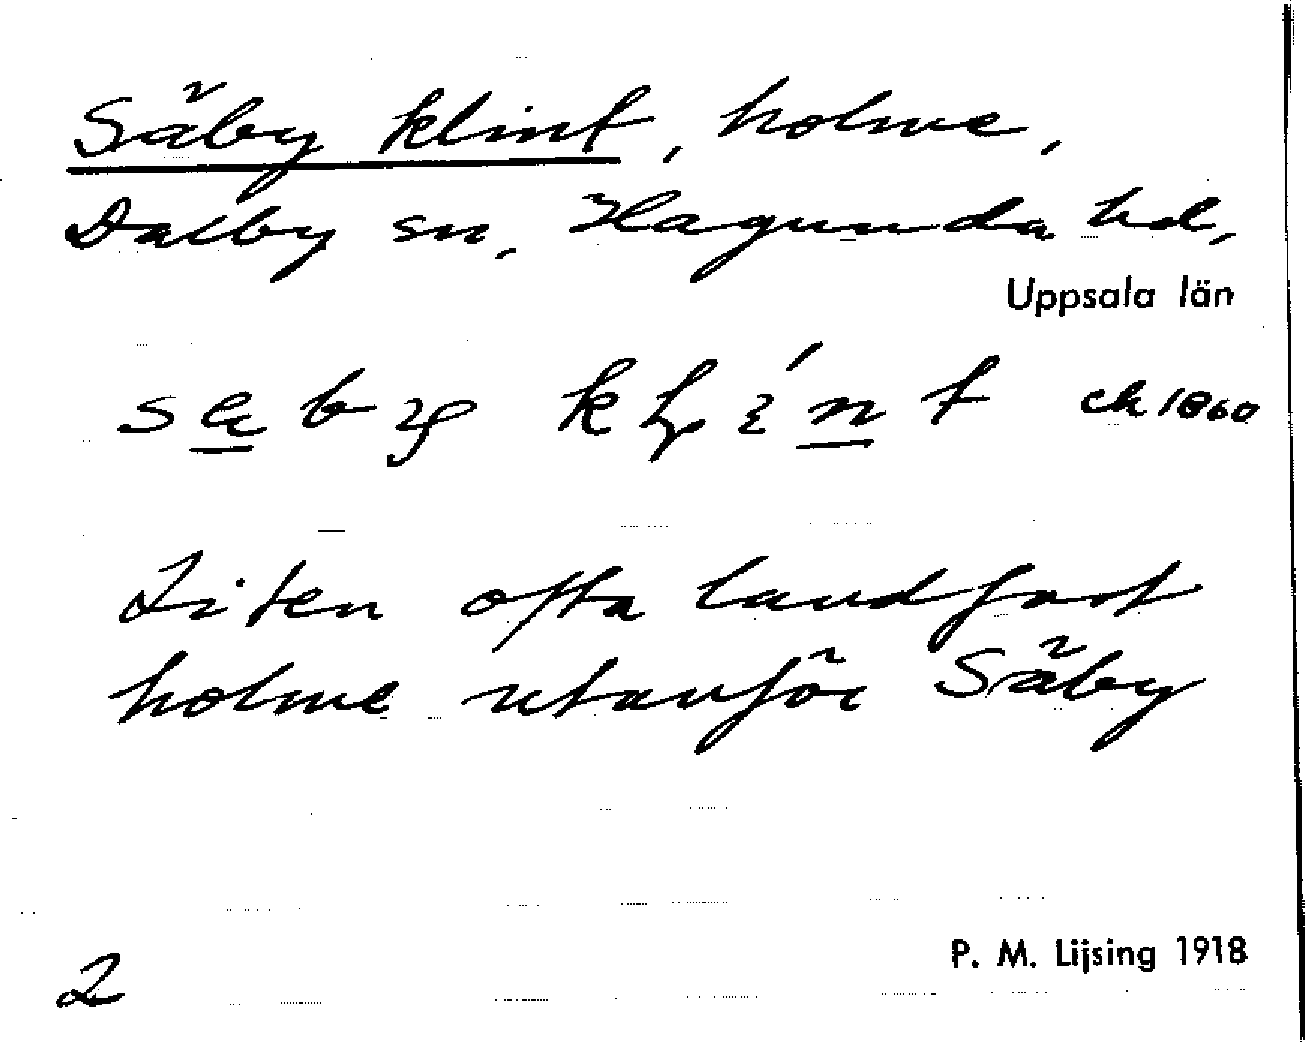 Säby klint, holme,
Dalby sn, Hagunda hd,
Uppsala län
ck 1860
Liten ofta landfast
holme utanför Säby
P. M. Lijsing 1918
2